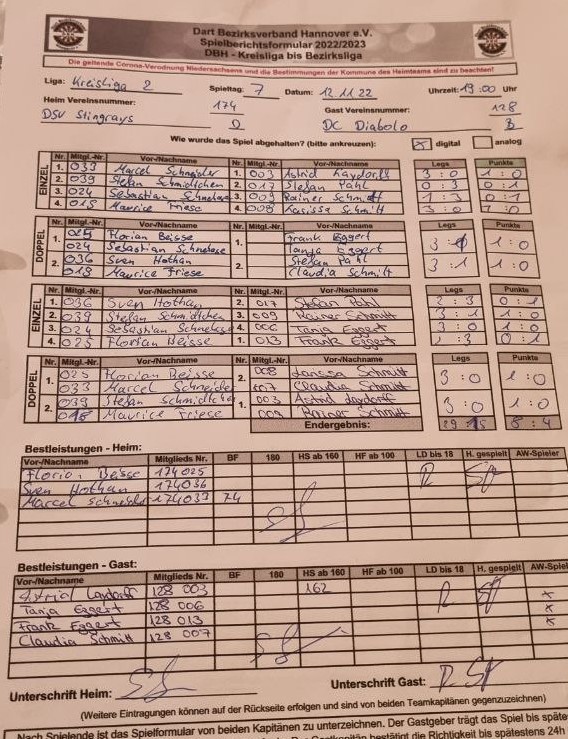 Dart Bezirksverband Hannover e.V.
Spielberichtsformular 2022/2023
DBH - Kreisliga bis Bezirksliga
Die geltende Corona-Verodnung Niedersachsens und die Bestimmungen der Kommune des Heimteams sind zu beachten!
Liga: Kreisliga 2 Spieltag: 7 Datum: 12.11.22 Uhrzeit: 19:00 Uhr
Heim Vereinsnummer: 174 Gast Vereinsnummer: 128
DSV Stingrays D DC Diabolo B
Wie wurde das Spiel abgehalten? (bitte ankreuzen): digital analog
EINZEL Nr. Mitgl.-Nr. Vor-/Nachname Nr. Mitgl.-Nr. Vor-/Nachname Legs Punkte
1. 033 Marcel Schneider 1. 003 Astrid 3:0 1:0
2. 039 Stefan Schmidlichen 2. 017 Stefan Pahl 0:3 0:1
3. 024 Sebastian Schnehage 3. 009 Rainer Schmitt 1:3 0:1
4. 018 Maurice Friese 4. 008 Larissa Schmitt 3:0 1:0
DOPPEL Nr. Mitgl.-Nr. Vor-/Nachname Nr. Mitgl.-Nr. Vor-/Nachname Legs Punkte
1. 025 Florian Beisse 1. Frank Eggert
024 Sebastian Schnehage Tanja Eggert 1:0
2. 036 Sven Hothan 2. Stefan Pahl
018 Maurice Friese Claudia Schmitt 3:1 1:0
EINZEL Nr. Mitgl.-Nr. Vor-/Nachname Nr. Mitgl.-Nr. Vor-/Nachname Legs Punkte
1. 036 Sven Hothan 2. 017 Stefan Pahl 2:3 0:1
2. 039 Stefan Schmidlichen 3. 009 Rainer Schmitt 3:1 1:0
3. 024 Sebastian Schnehage 4. 006 Tanja Eggert 3:0 1:0
4. 025 Florian Beisse 1. 013 Frank Eggert :3 0:1
DOPPEL Nr. Mitgl.-Nr. Vor-/Nachname Nr. Mitgl.-Nr. Vor-/Nachname Legs Punkte
1. 025 Florian Beisse 2. 008 Larissa Schmitt
033 Marcel Schneider 007 Claudia Schmitt 3:0 1:0
2. 039 Stefan Schmidlichen 1. 003 Astrid
018 Maurice Friese 009 Rainer Schmitt 3:0 1:0
Endergebnis: 8:4
Bestleistungen - Heim:
Vor-/Nachname Mitglieds Nr. BF 180 HS ab 160 HF ab 100 LD bis 18 H. gespielt AW-Spieler
Florian Beisse 174025
Sven Hothan 174036
Marcel Schneider 174033 74
Bestleistungen - Gast:
Vor-/Nachname Mitglieds Nr. BF 180 HS ab 160 HF ab 100 LD bis 18 H. gespielt AW-Spieler
Astrid 128 003 162 x
Tanja Eggert 128 006 x
Frank Eggert 128 013 x
Claudia Schmitt 128 007
Unterschrift Heim: Unterschrift Gast:
(Weitere Eintragungen können auf der Rückseite erfolgen und sind von beiden Teamkapitänen gegenzuzeichnen)
Nach Spielende ist das Spielformular von beiden Kapitänen zu unterzeichnen. Der Gastgeber trägt das Spiel bis späte
bestätigt die Richtigkeit bis spätestens 24h